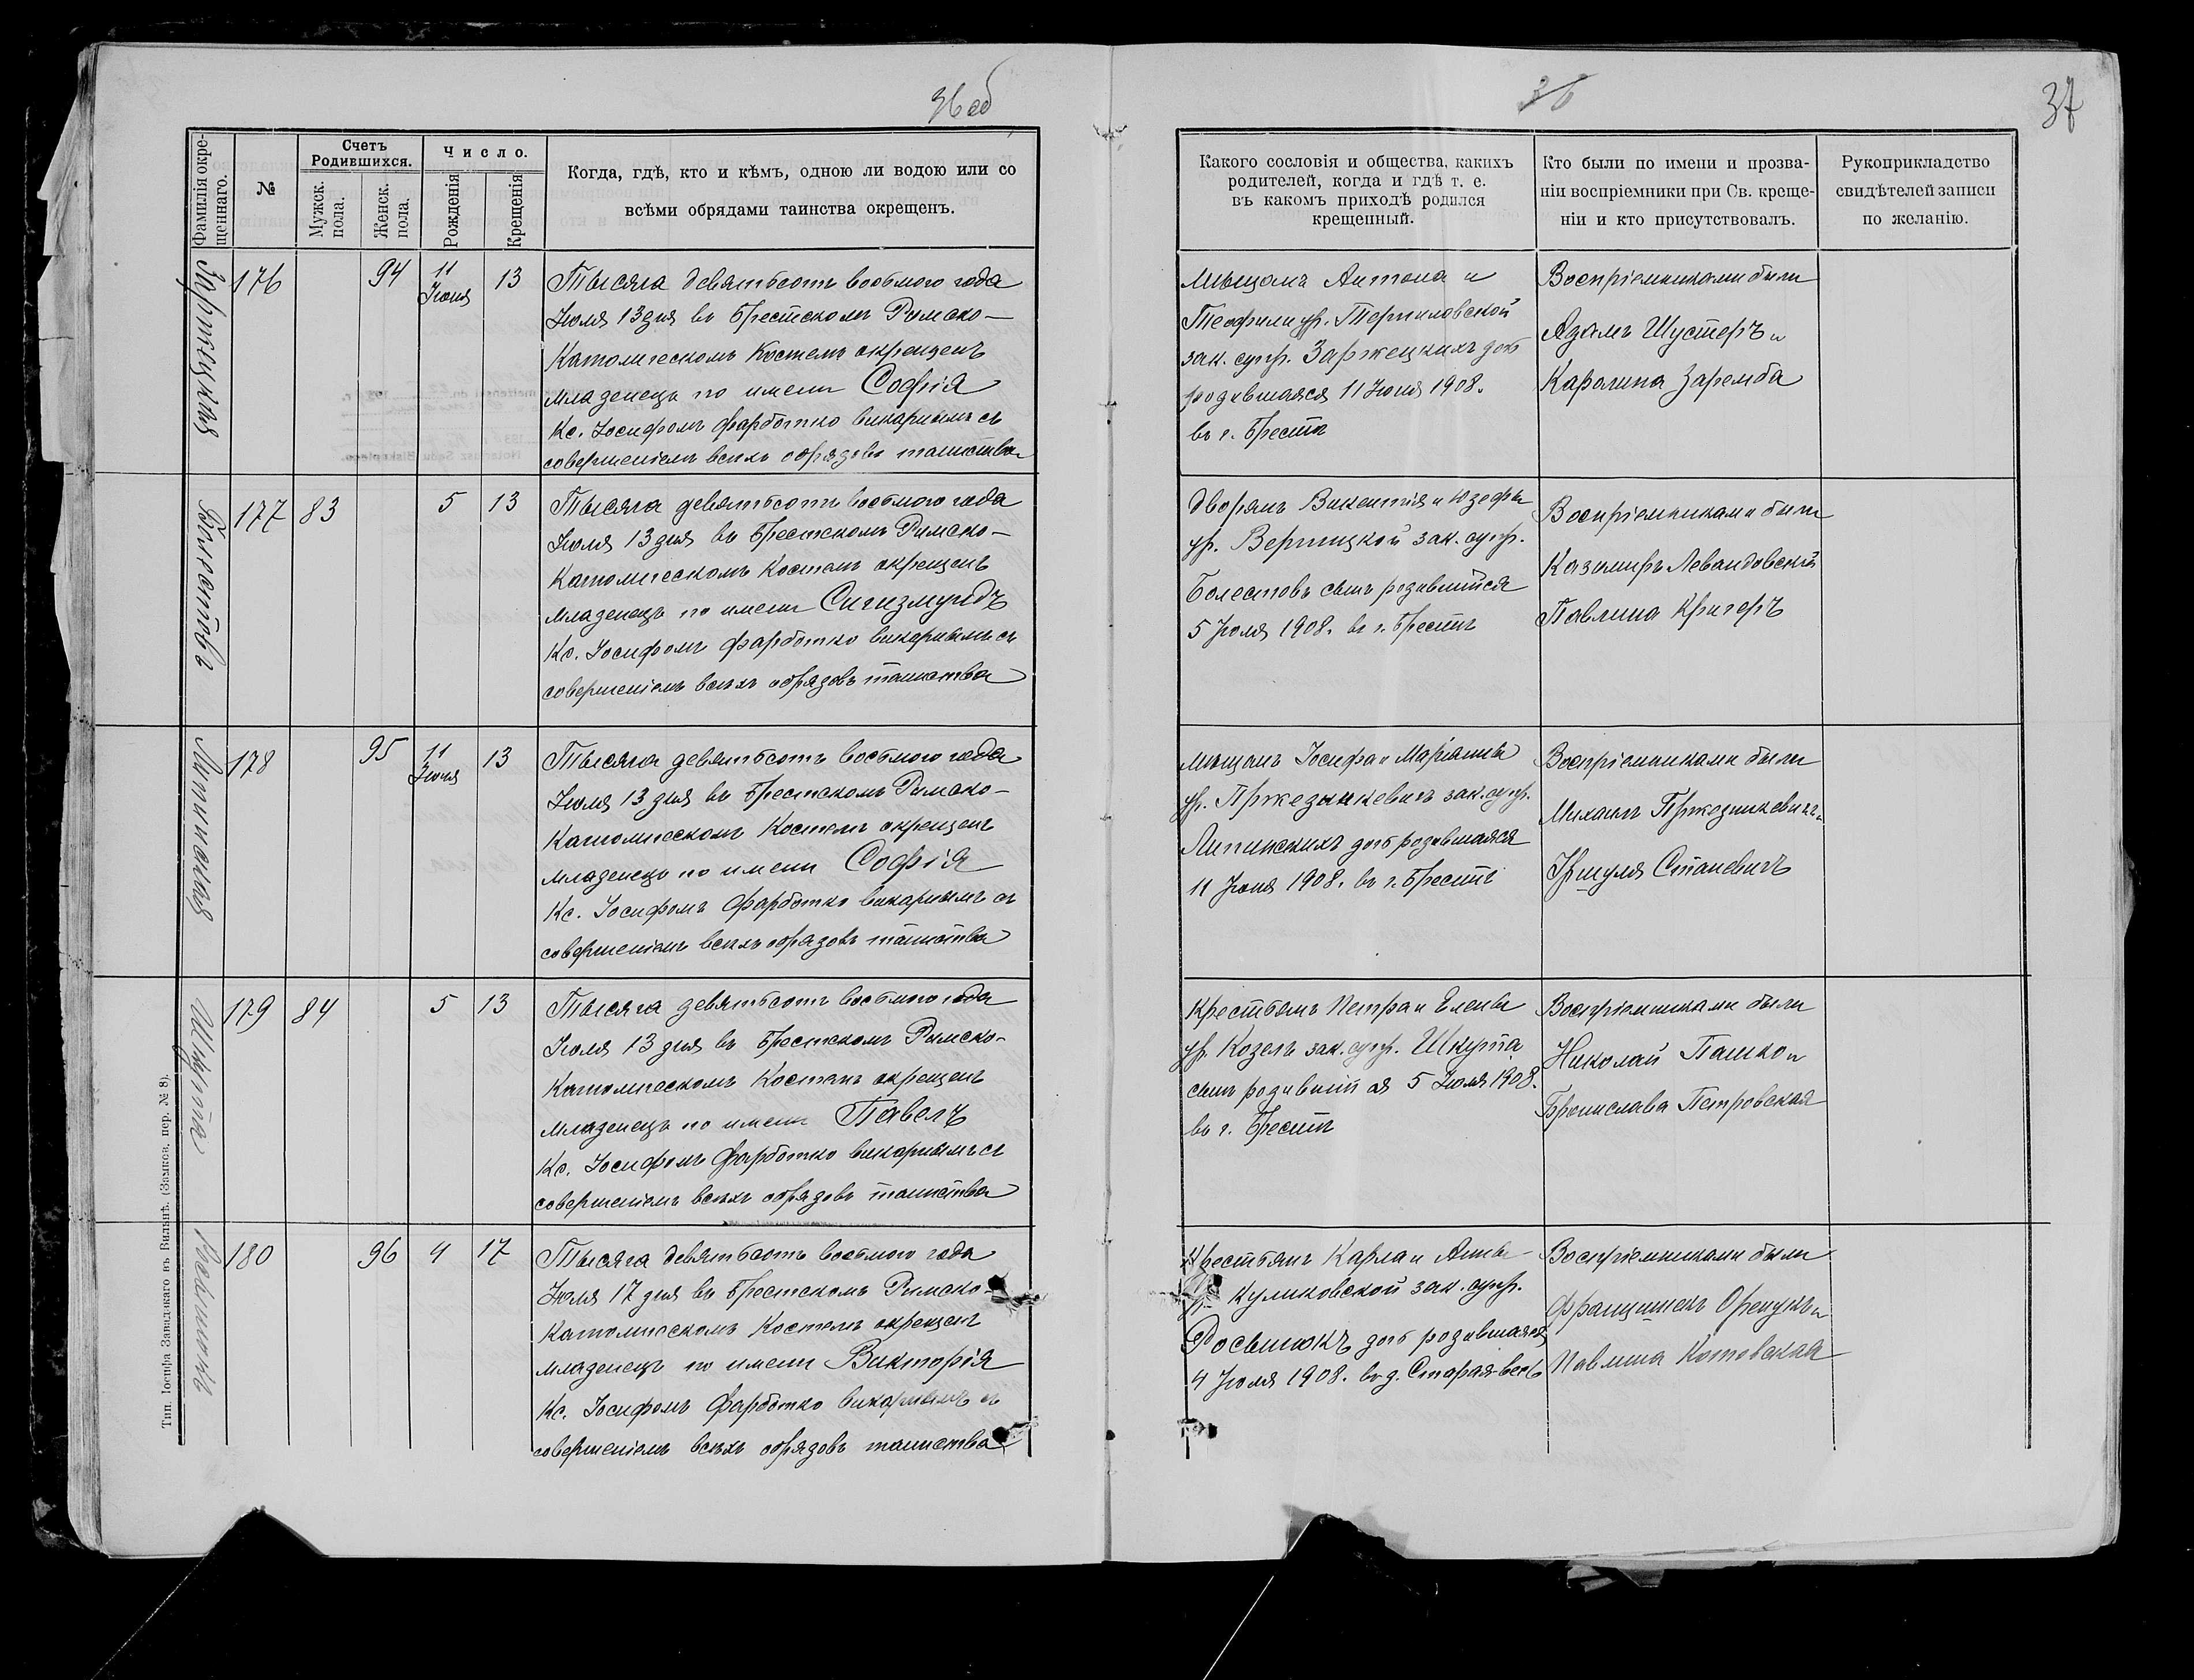 36 об
36
37
Фамилія окре-
щеннаго.
№
Счетъ
Родившихся.
Мужск.
пола.
Женск.
пола.
Число.
Рожденія
Крещенія
Когда, гдѣ, кто и кѣмъ, одною ли водою или со
всѣми обрядами таинства окрещенъ.
Какого сословія и общества, какихъ
родителей, когда и гдѣ т. е.
въ какомъ приходѣ родился
крещенный.
Кто были по имени и прозва-
ніи воспріемники при Св. креще-
ніи и кто присутствовалъ.
Рукоприкладство
свидѣтелей записи
по желанію.
Заржецкая
176
94
11
Іюня
13
Тысяча девятьсотъ восьмого года
Іюля 13 дня въ Брестскомъ Римско-
Католическомъ Костелѣ окрещенъ
младенецъ по имени Софія
Кс. Іосифомъ Фарботко викарнымъ съ
совершеніемъ всѣхъ обрядовъ таинства
Мѣщанъ Антона и
Теофили ур. Термиловской
зак. супр. Заржецкихъ дочь
родившаяся 11 Іюня 1908.
въ г. Брестѣ
Воспріемниками были
Адамъ Шустеръ и
Каролина Заремба
Болестовъ
177
83
5
13
Тысяча девятьсотъ восьмого года
Іюля 13 дня въ Брестскомъ Римско-
Католическомъ Костелѣ окрещенъ
младенецъ по имени Сигизмундъ
Кс. Іосифомъ Фарботко викарнымъ съ
совершеніемъ всѣхъ обрядовъ таинства
Дворянъ Викентія и Юзефы
ур. Вертицкой зак. супр.
Болестовъ сынъ родившійся
5 Іюля 1908. въ г. Брестѣ
Воспріемниками были
Казимиръ Левандовскій
Павлина Кригеръ
Липинская
178
95
11
Іюня
13
Тысяча девятьсотъ восьмого года
Іюля 13 дня въ Брестскомъ Римско-
Католическомъ Костелѣ окрещенъ
младенецъ по имени Софія
Кс. Іосифомъ Фарботко викарнымъ съ
совершеніемъ всѣхъ обрядовъ таинства
Мѣщанъ Іосифа и Маріанны
ур. Пржезынкевичъ зак. супр.
Липинскихъ дочь родившаяся
11 Іюня 1908. въ г. Брестѣ
Воспріемниками были
Михаилъ Пржезинкевичъ и
Уршуля Станевичъ
Шкута
179
84
5
13
Тысяча девятьсотъ восьмого года
Іюля 13 дня въ Брестскомъ Римско-
Католическомъ Костелѣ окрещенъ
младенецъ по имени Павелъ
Кс. Іосифомъ Фарботко викарнымъ съ
совершеніемъ всѣхъ обрядовъ таинства
Крестьянъ Петра и Елены
ур. Козелъ зак. супр. Шкута
сынъ родившійся 5 Іюля 1908.
въ г. Брестѣ
Воспріемниками были
Николай Пашко и
Бронислава Петровская
Росьинюкъ
180
96
4
17
Тысяча девятьсотъ восьмого года
Іюля 17 дня въ Брестскомъ Римско-
Католическомъ Костелѣ окрещенъ
младенецъ по имени Викторія
Кс. Іосифомъ Фарботко викарнымъ съ
совершеніемъ всѣхъ обрядовъ таинства
Крестьянъ Карла и Анны
ур. Куликовской зак. супр.
Росьинюкъ дочь родившаяся
4 Іюля 1908. въ д. Старая-весь
Воспріемниками были
Францишекъ Оренукъ и
Павлина Котовская
Тип. Іосифа Завадзкаго въ Вильнѣ. (Замков. пер. № 8).